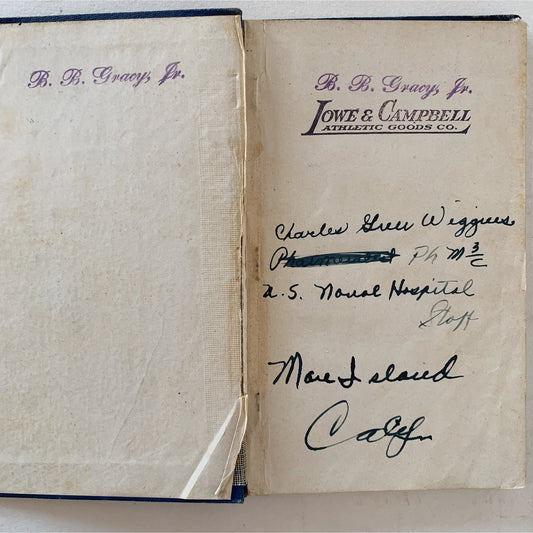 B. B. Gracy, Jr.
B. B. Gracy, Jr.
LOWE & CAMPBELL
ATHLETIC GOODS CO.
Charles Greer Wiggins
Ph M 3/c
U.S. Naval Hospital
Staff
Mare Island
Calif